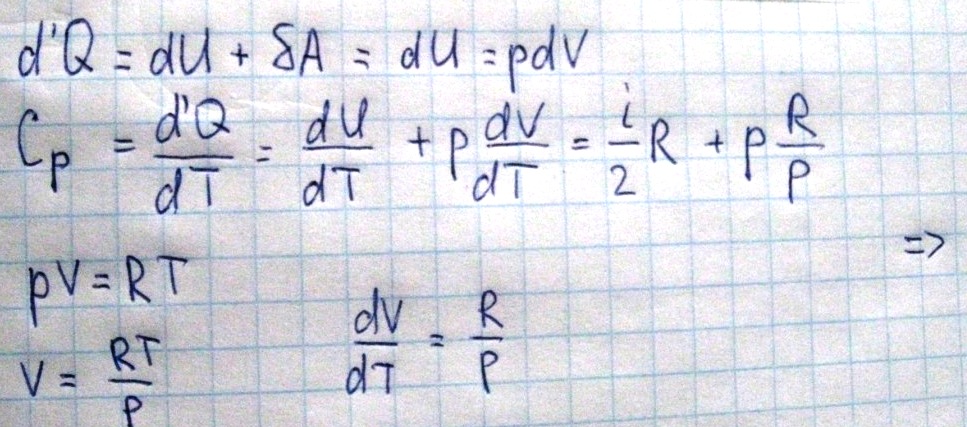 d'Q = dU + δA = dU = pdV
C_p = d'Q/dT = dU/dT + p dV/dT = i/2 R + p R/p
=>
pV = RT
V = RT/p dV/dT = R/p